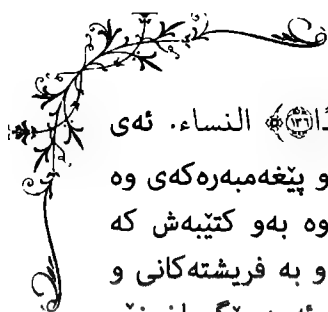 دًا﴿١٣٦﴾ النساء. ئەی
و پێغەمبەرەکەی وە
وە بەو کتێبەش کە
و بە فریشتەکانی و